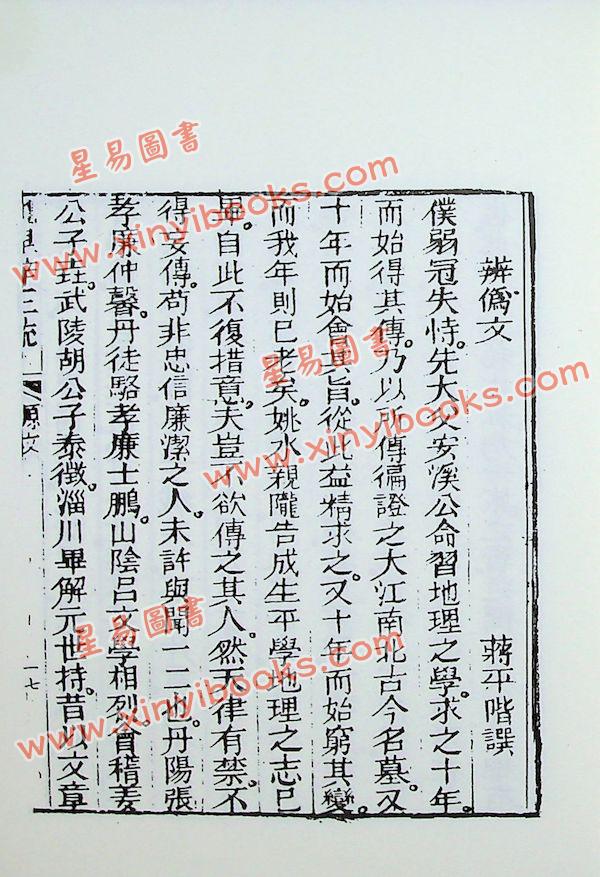 辨僞文 蔣平階譔
僕弱冠失恃。先大父安溪公命習地理之學。求之十年。
而始得其傳。乃以所傳徧證之大江南北古今名墓。又
十年而始會其旨。從此益精求之。又十年而始窮其變。
而我年則已老矣。姚水親隴告成生平學地理之志已
畢。自此不復措意。夫豈不欲傳之其人。然天律有禁。不
得妄傳。苟非忠信廉潔之人。未許與聞一二也。丹陽張
孝廉仲馨。丹徒駱孝廉士鵬。山陰呂文學相烈。會稽姜
公子垚。武陵胡公子泰徵。淄川畢解元世持。昔以文章
原文
一七
星易圖書
www.xinyibooks.com
星易圖書
www.xinyibooks.com
星易圖書
www.xinyibooks.com